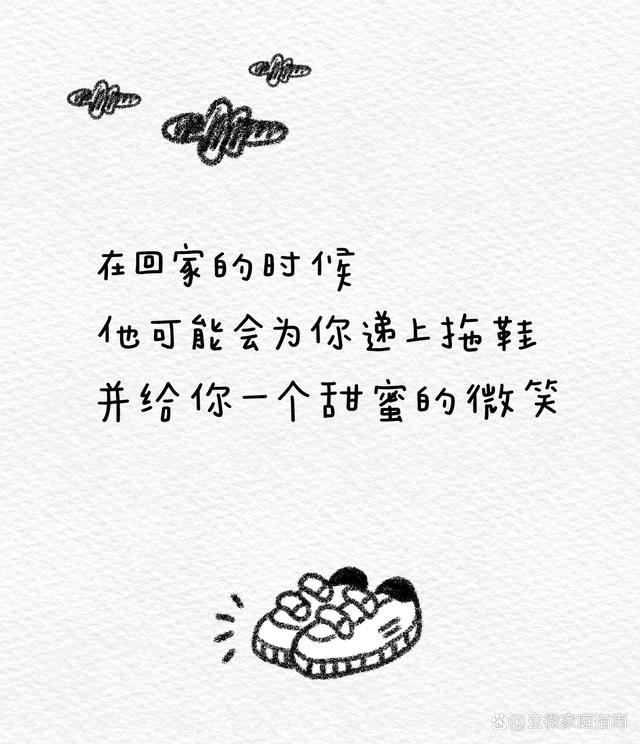 在回家的时候
他可能会为你递上拖鞋
并给你一个甜蜜的微笑
@玄微家庭指南